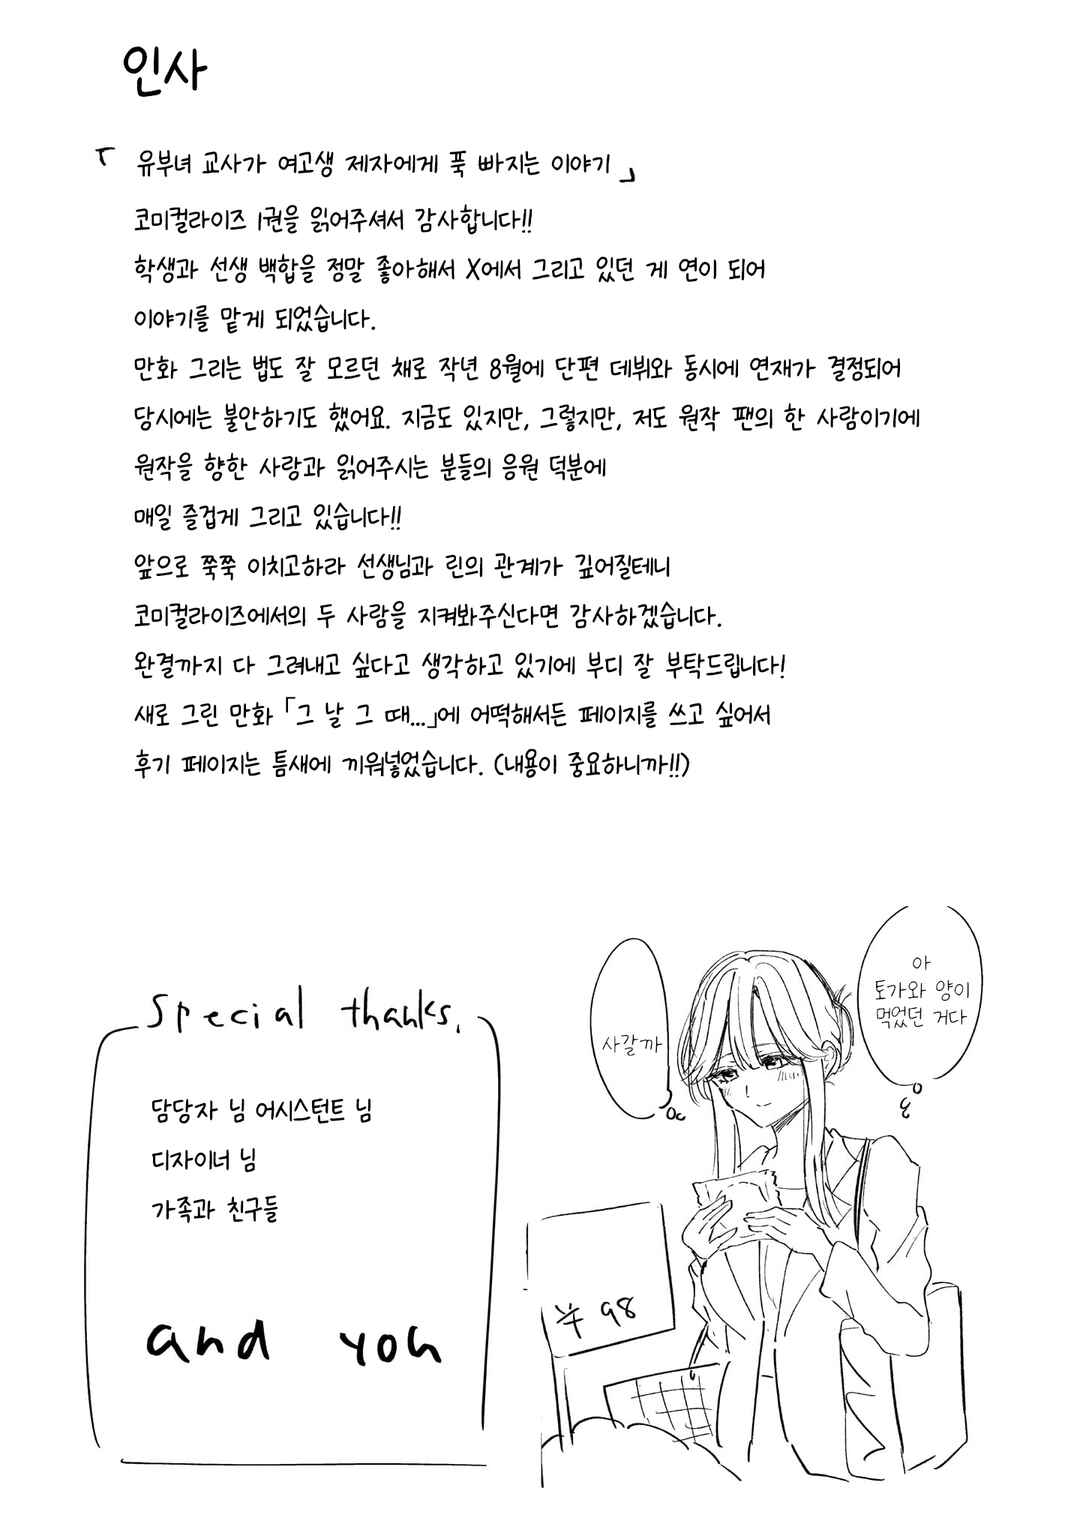 인사
「유부녀 교사가 여고생 제자에게 푹 빠지는 이야기」
코미컬라이즈 1권을 읽어주셔서 감사합니다!!
학생과 선생 백합을 정말 좋아해서 X에서 그리고 있던 게 연이 되어
이야기를 맡게 되었습니다.
만화 그리는 법도 잘 모르던 채로 작년 8월에 단편 데뷔와 동시에 연재가 결정되어
당시에는 불안하기도 했어요. 지금도 있지만, 그렇지만, 저도 원작 팬의 한 사람이기에
원작을 향한 사랑과 읽어주시는 분들의 응원 덕분에
매일 즐겁게 그리고 있습니다!!
앞으로 쭉쭉 이치고하라 선생님과 린의 관계가 깊어질테니
코미컬라이즈에서의 두 사람을 지켜봐주신다면 감사하겠습니다.
완결까지 다 그려내고 싶다고 생각하고 있기에 부디 잘 부탁드립니다!
새로 그린 만화 「그 날 그 때...」에 어떡해서든 페이지를 쓰고 싶어서
후기 페이지는 틈새에 끼워넣었습니다. (내용이 중요하니까!!)
Special thanks.
담당자 님 어시스턴트 님
디자이너 님
가족과 친구들
and you
아
토가와 양이
먹었던 거다
사갈까
¥98